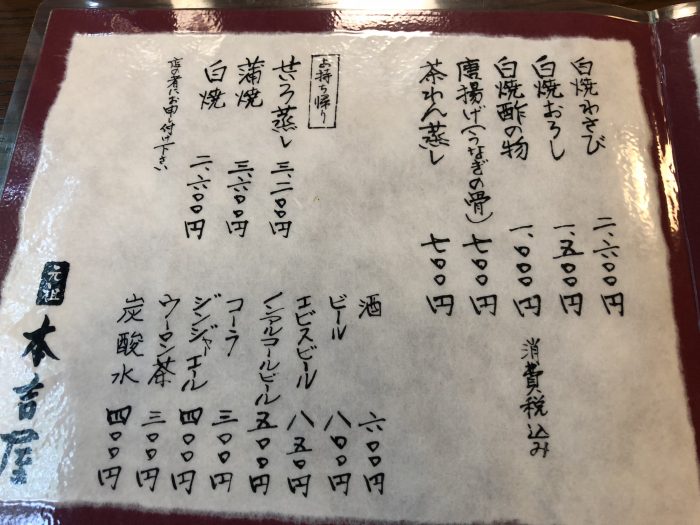 白焼わさび 二、六〇〇円
白焼おろし 一、五〇〇円
白焼酢の物 一、〇〇〇円
唐揚げ(うなぎの骨) 七〇〇円
茶わん蒸し 七〇〇円
消費税込み
お持ち帰り
せいろ蒸し 三、二〇〇円
蒲焼 三、六〇〇円
白焼 二、六〇〇円
店の者にお申し付け下さい
酒 六〇〇円
ビール 八〇〇円
エビスビール 八五〇円
ノンアルコールビール 五〇〇円
コーラ 三〇〇円
ジンジャーエール 四〇〇円
ウーロン茶 三〇〇円
炭酸水 四〇〇円
元祖 本吉屋